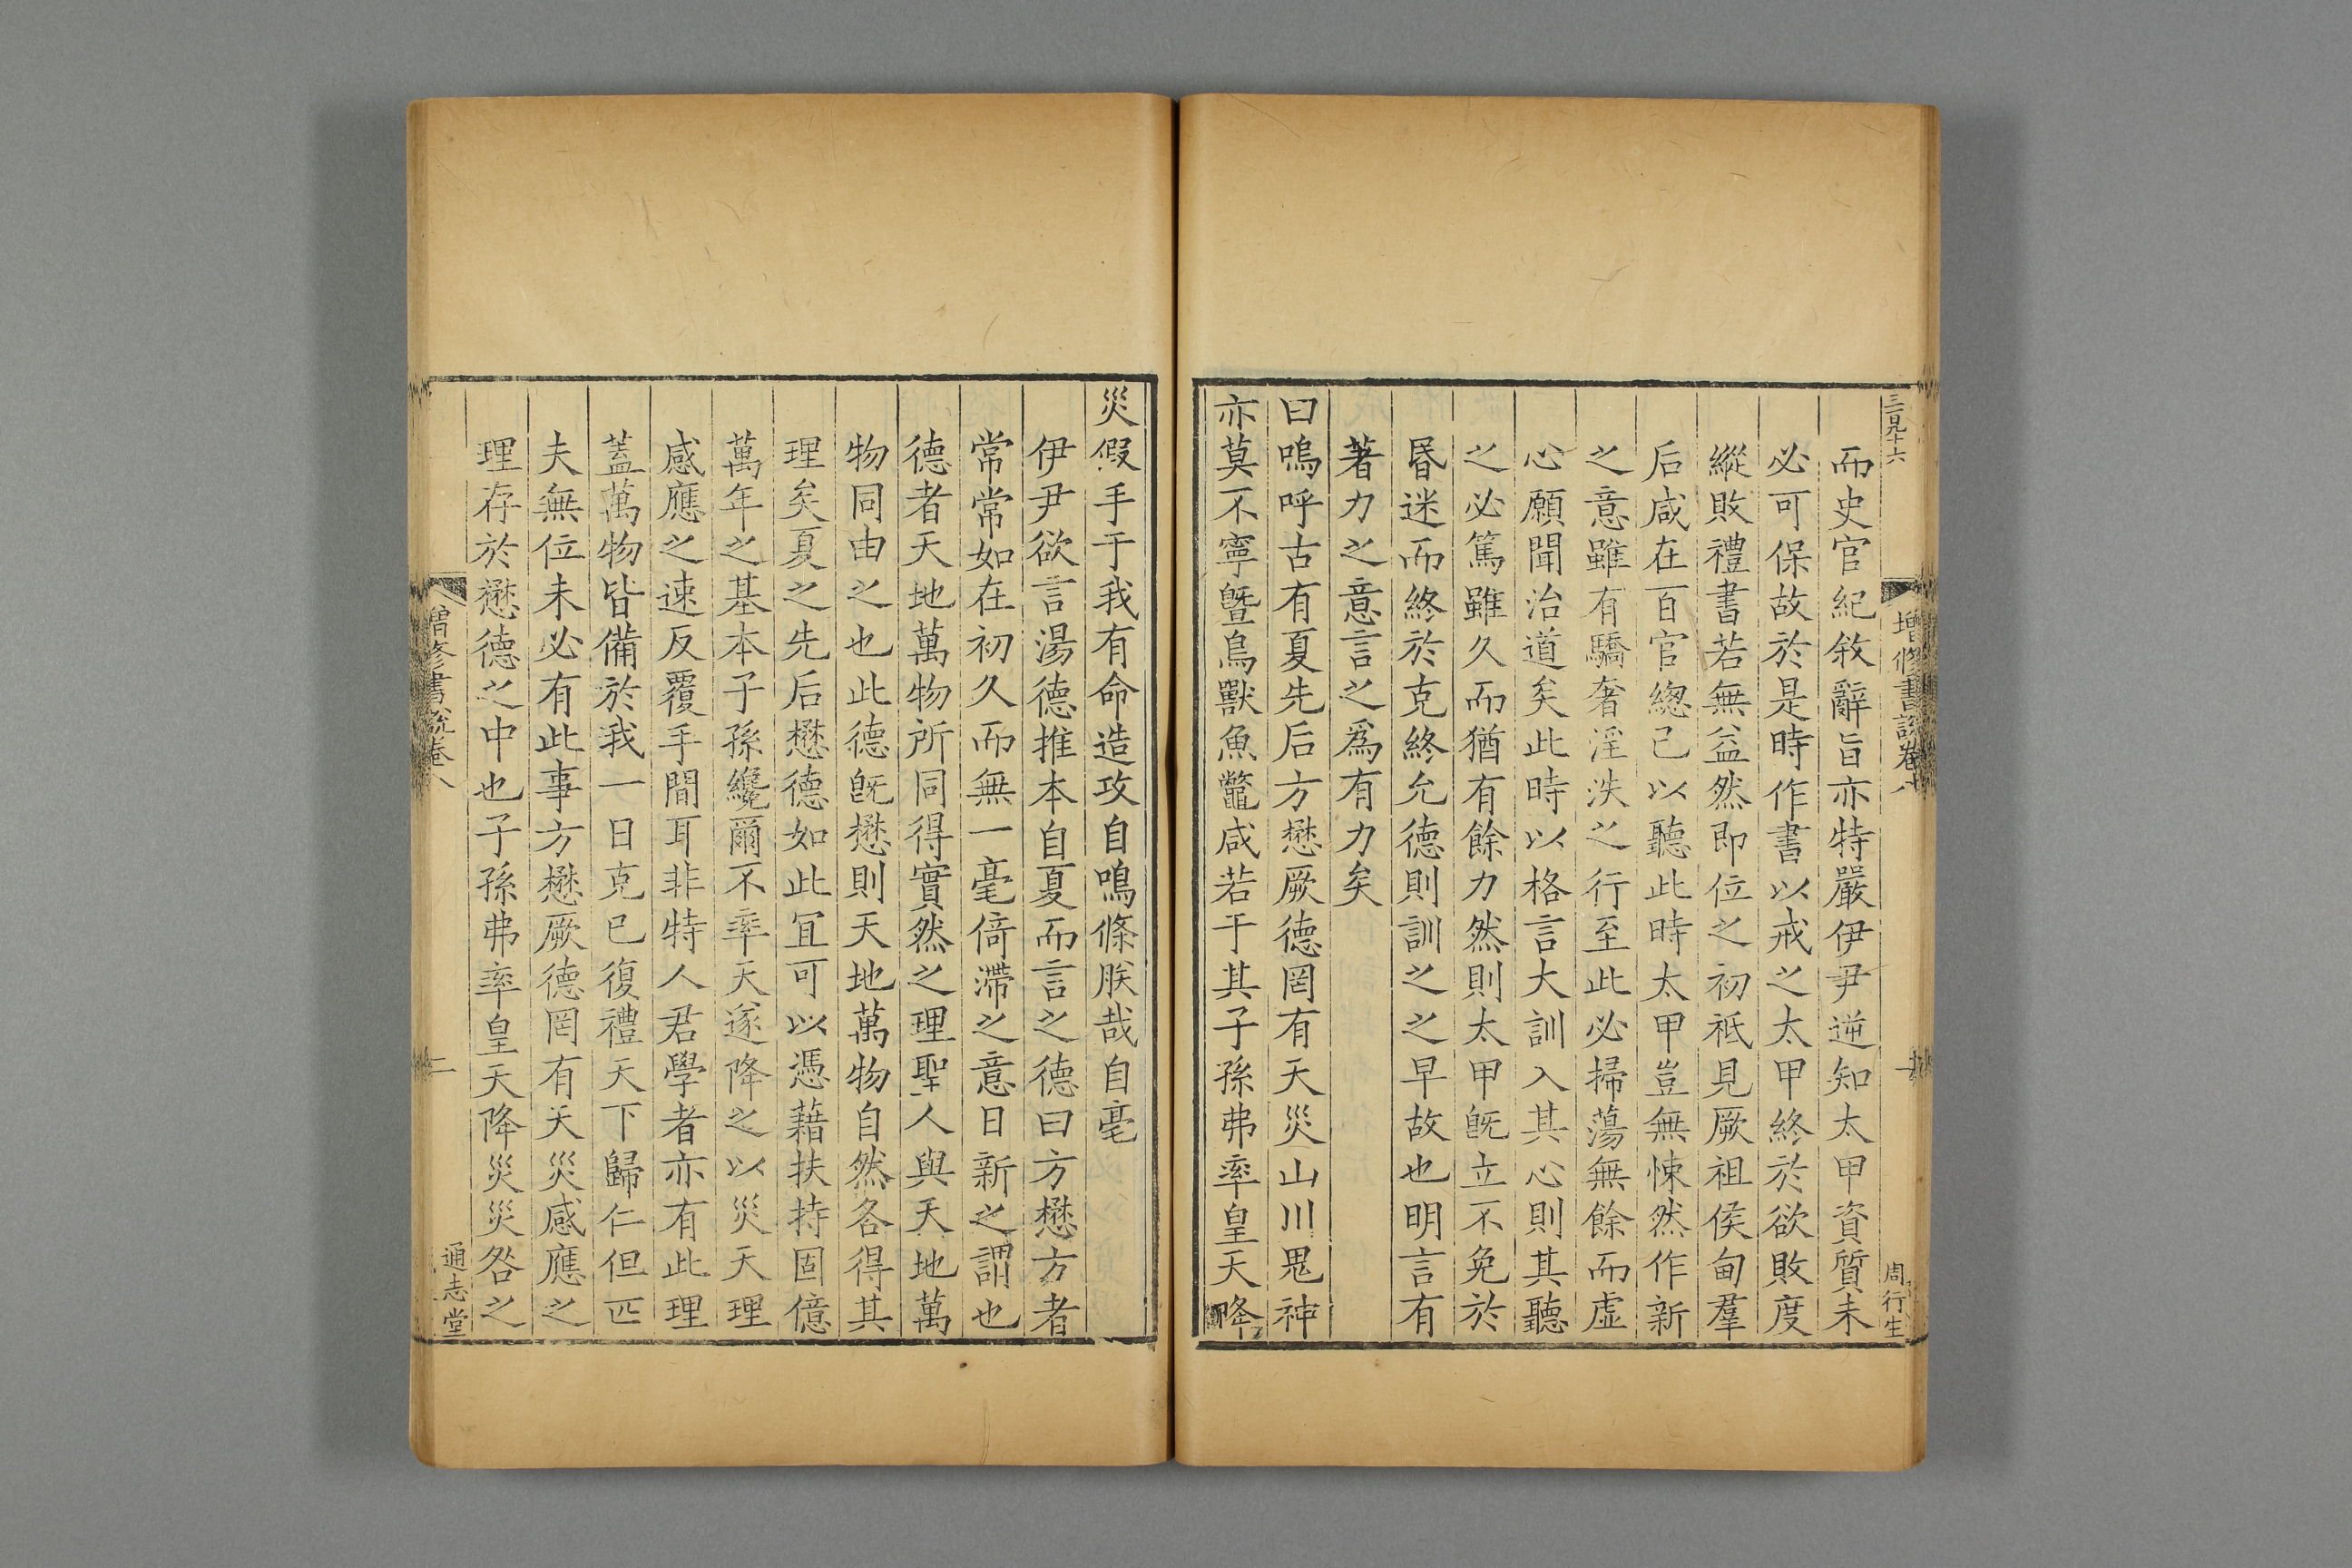 而史官紀敘辭旨亦特嚴伊尹逆知太甲資質未
必可保故於是時作書以戒之太甲終於欲敗度
縱敗禮書若無益然即位之初祗見厥祖侯甸羣
后咸在百官緫己以聽此時太甲豈無悚然作新
之意雖有驕奢淫泆之行至此必掃蕩無餘而虛
心願聞治道矣此時以格言大訓入其心則其聽
之必篤雖久而猶有餘力然則太甲旣立不免於
昬迷而終於克終允德則訓之之早故也明言有
著力之意言之爲有力矣
曰嗚呼古有夏先后方懋厥德罔有天災山川鬼神
亦莫不寧曁鳥獸魚鼈咸若于其子孫弗率皇天降
災假手于我有命造攻自鳴條朕哉自亳
伊尹欲言湯德推本自夏而言之德曰方懋方者
常常如在初久而無一毫倚滯之意日新之謂也
德者天地萬物所同得實然之理聖人與天地萬
物同由之也此德旣懋則天地萬物自然各得其
理矣夏之先后懋德如此冝可以憑藉扶持固億
萬年之基本子孫纔爾不率天遂降之以災天理
感應之速反覆手間耳非特人君學者亦有此理
蓋萬物皆備於我一日克已復禮天下歸仁但匹
夫無位未必有此事方懋厥德罔有天災感應之
理存於懋德之中也子孫弗率皇天降災災咎之
增修書說卷八
周行生
增修書說卷八
二
通志堂